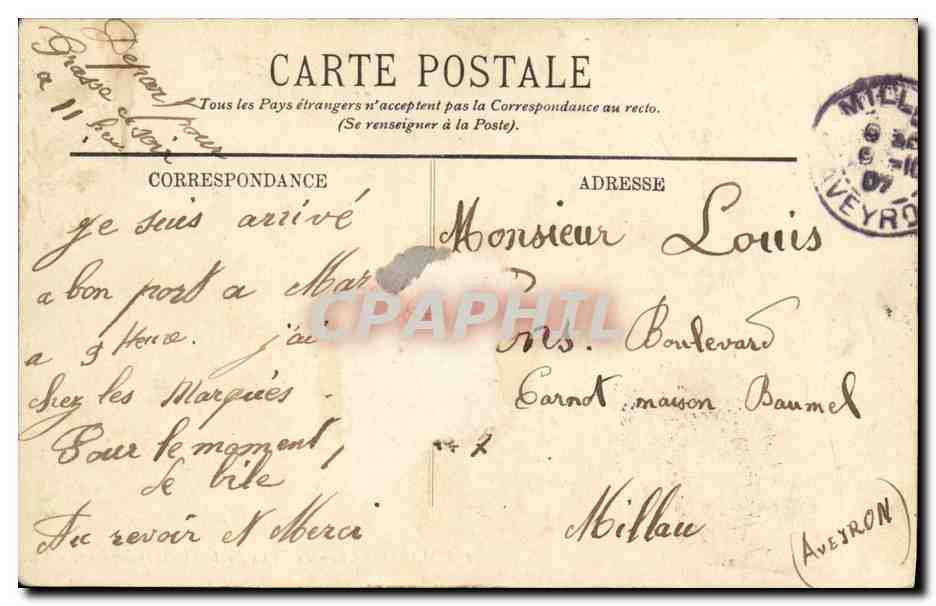 Depart pour
Grasse ce soir
a 11 heu
CARTE POSTALE
Tous les Pays étrangers n'acceptent pas la Correspondance au recto.
(Se renseigner à la Poste).
MILL
AVEYRO
07
CORRESPONDANCE
ADRESSE
Je suis arrivé
a bon port a Mar
a 9 Heure. j'ai
chez les Marquès.
Pour le moment,
de bile
Au revoir et Merci
Monsieur Louis
Boulevard
Carnot maison Baumel
Millau
(AVEYRON)
CPAPHIL